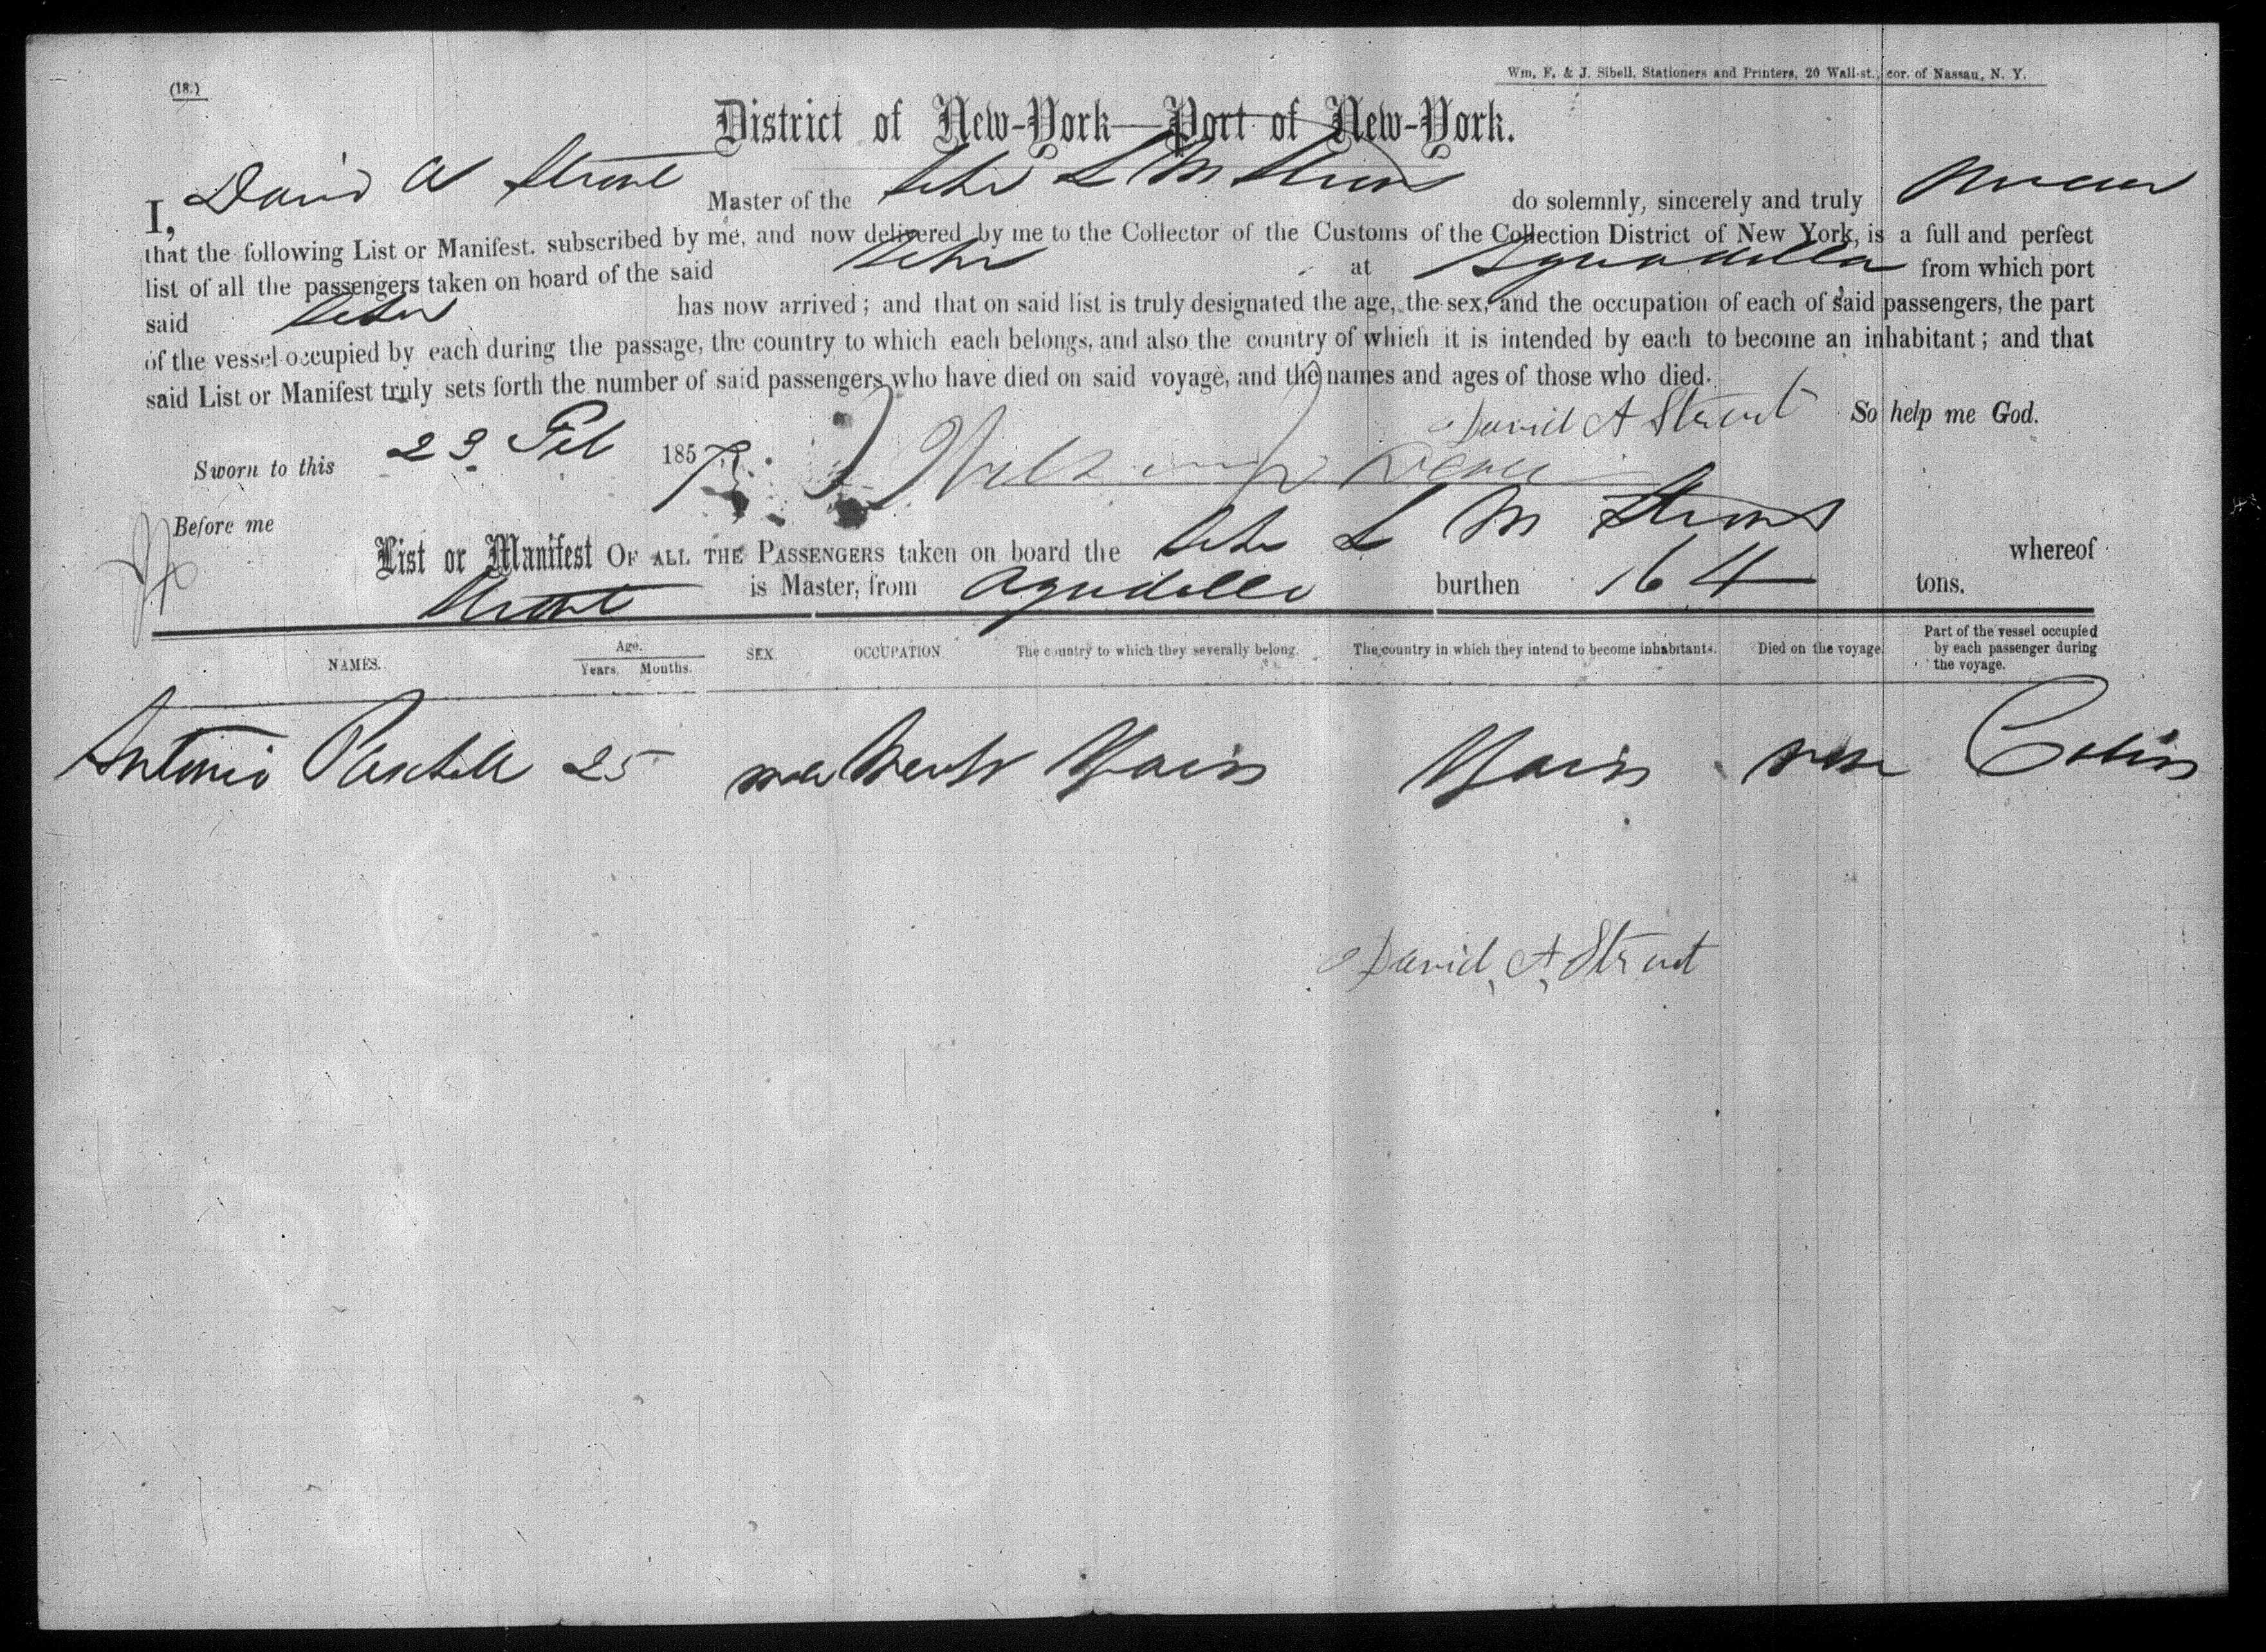 (18.)
Wm. F. & J. Sibell, Stationers and Printers, 20 Wall-st., cor. of Nassau, N. Y.
District of New-York—Port of New-York.
I, David A Strout Master of the Schr L M Strout do solemnly, sincerely and truly swear
that the following List or Manifest. subscribed by me, and now delivered by me to the Collector of the Customs of the Collection District of New York, is a full and perfect
list of all the passengers taken on board of the said Schr at Aguadilla from which port
said Schr has now arrived; and that on said list is truly designated the age, the sex, and the occupation of each of said passengers, the part
of the vessel occupied by each during the passage, the country to which each belongs, and also the country of which it is intended by each to become an inhabitant; and that
said List or Manifest truly sets forth the number of said passengers who have died on said voyage, and the names and ages of those who died.
David A Strout So help me God.
Sworn to this 23 Feb 185
Before me
List or Manifest OF ALL THE PASSENGERS taken on board the Schr L M Strout whereof
Strout is Master, from Aguadilla burthen 164 tons.
NAMES. Age. Years. Months. SEX. OCCUPATION. The country to which they severally belong. The country in which they intend to become inhabitants. Died on the voyage. Part of the vessel occupied by each passenger during the voyage.
Antonio 25 male Cabin
David A Strout